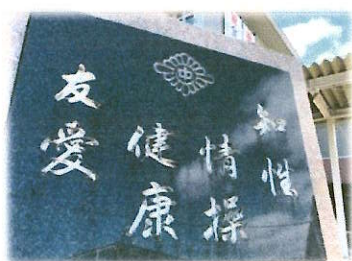 知性
情操
健康
友愛